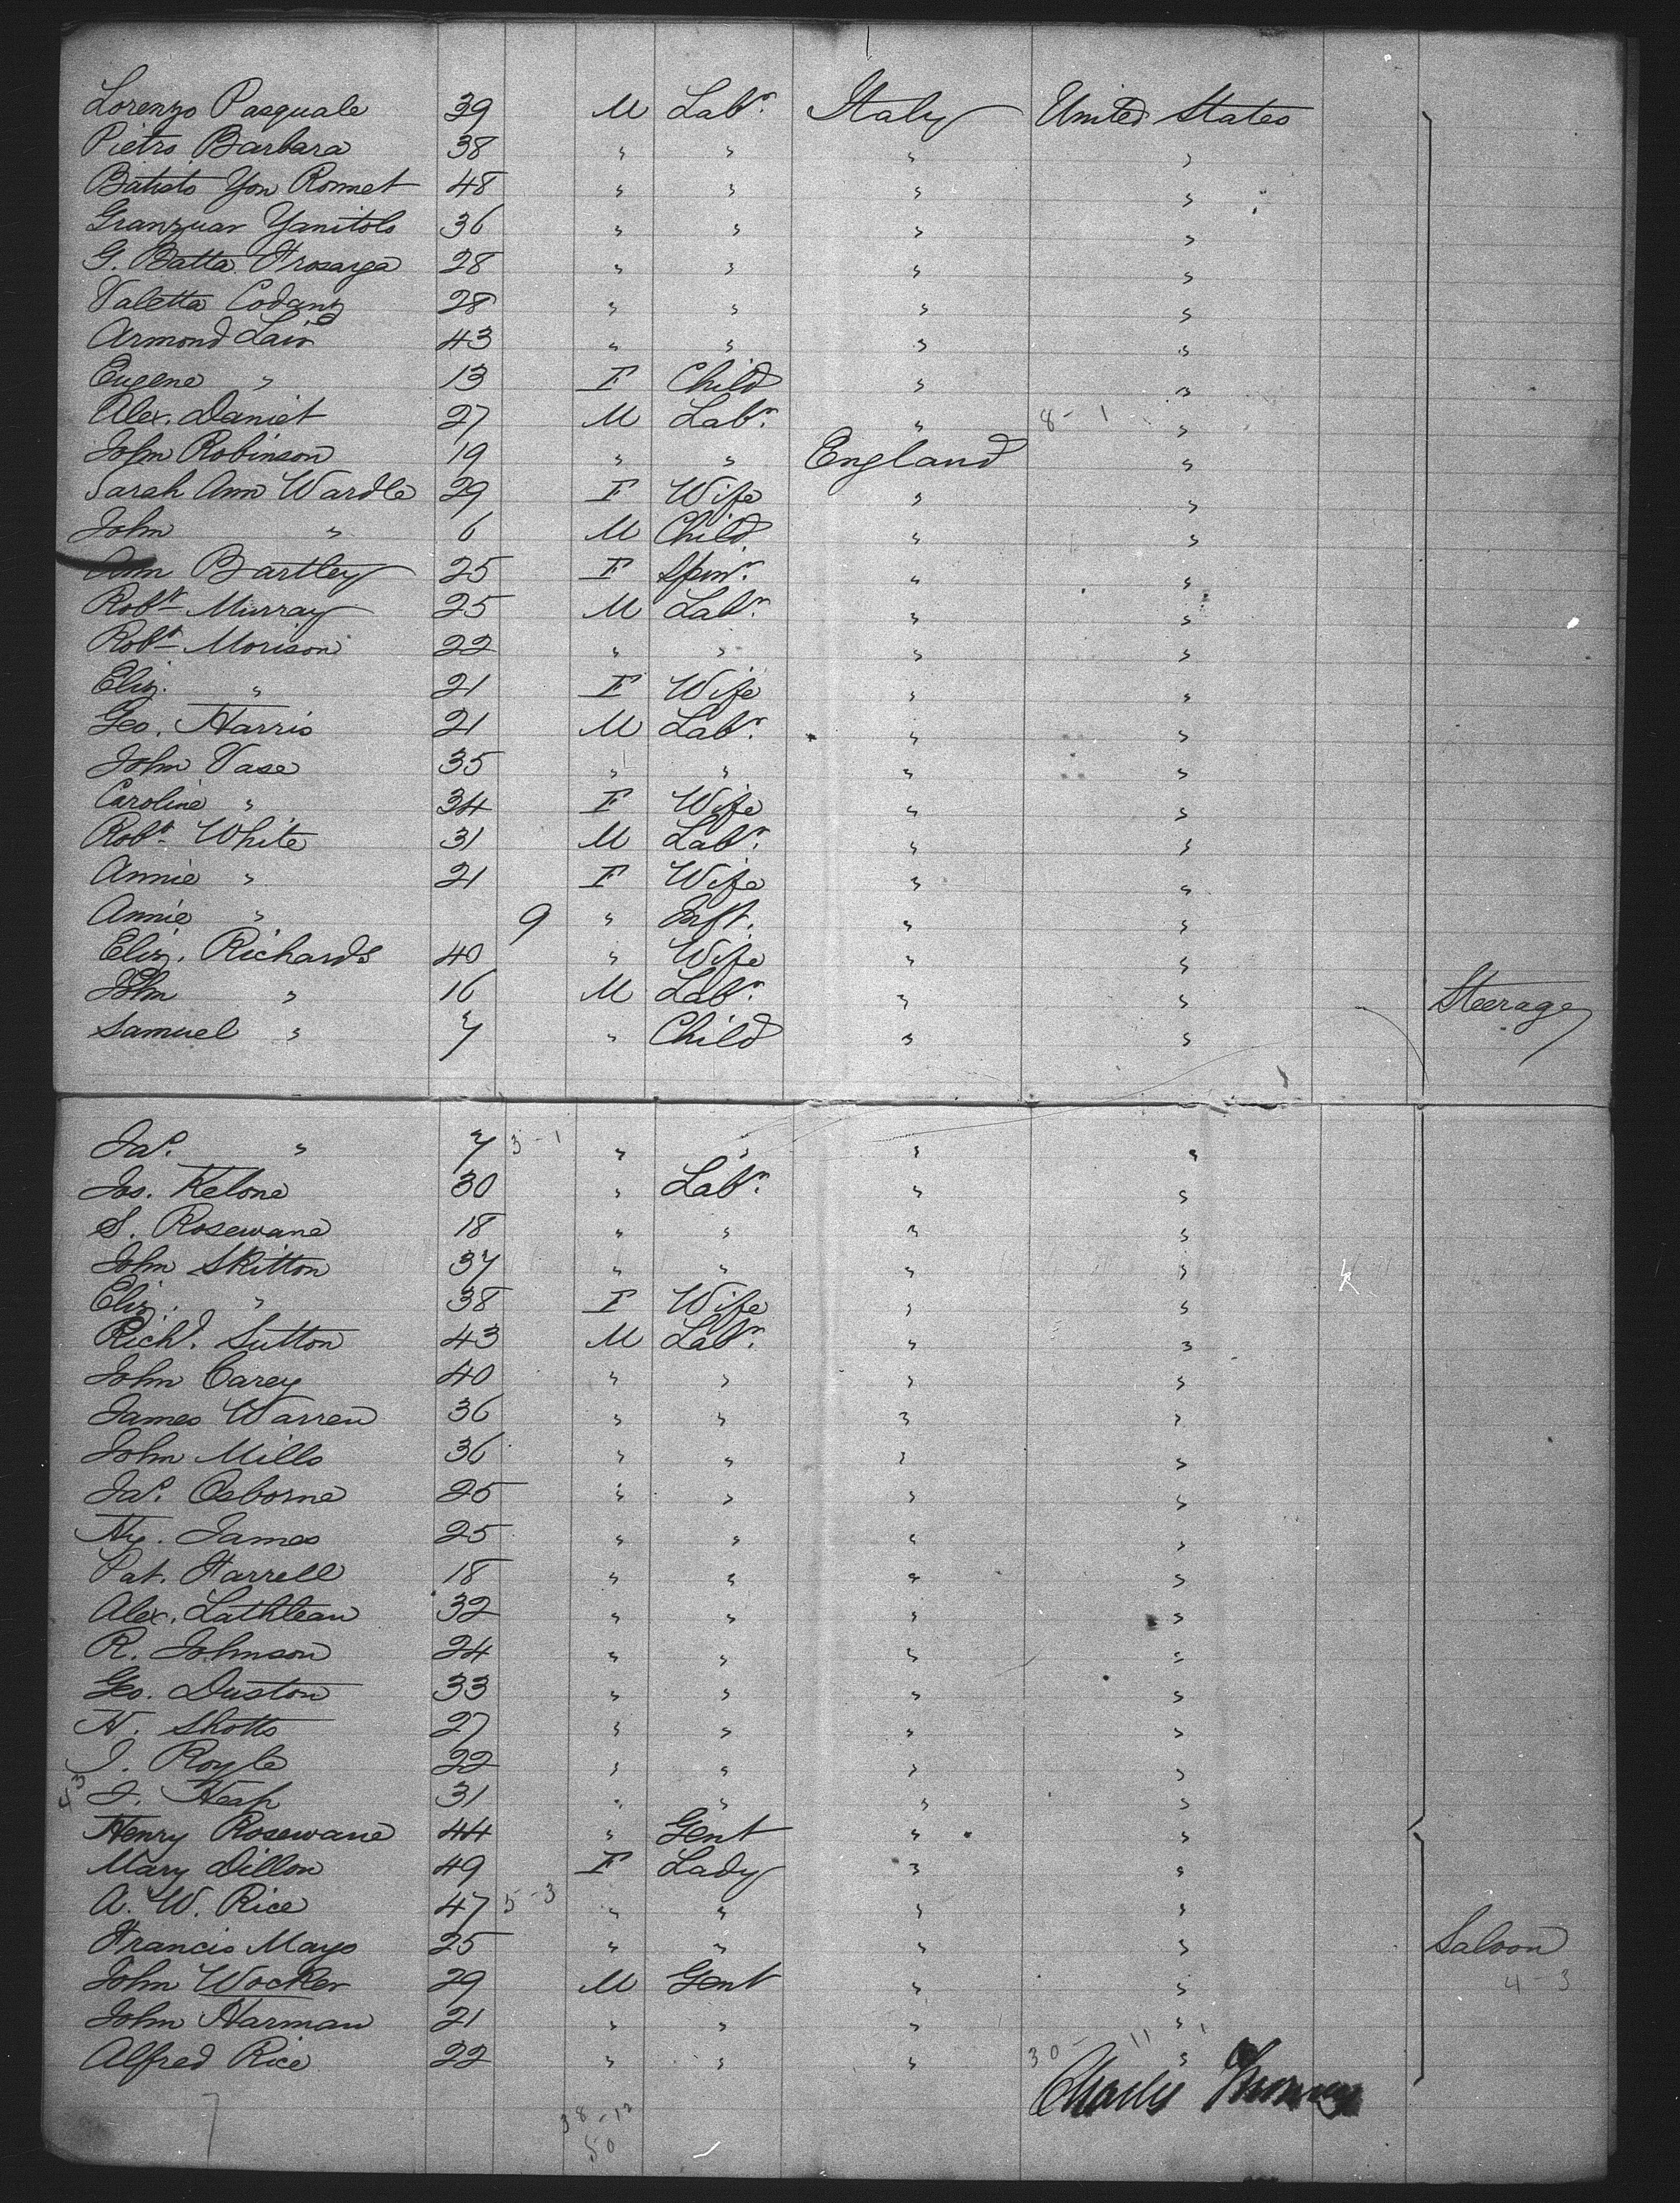 Lorenzo Pasquale 39 M Labr. Italy United States
Pietro Barbara 38 " " " "
Batisto Yon Ronnet 48 " " " "
Granzuar Yanitolo 36 " " " "
G. Batta 28 " " " "
Valetta 28 " " " "
Armond Lair 43 " " " "
Eugene " 13 F Child " "
Alex. Daniet 27 M Labr. " 8 - 1 "
John Robinson 19 " " England "
Sarah Ann Wardle 29 F Wife " "
John " 6 M Child " "
Ann Bartley 25 F Spinr. " "
Robt. Murray 25 M Labr. " "
Robt. Morison 22 " " " "
Eliz. " 21 F Wife " "
Geo. Harris 21 M Labr. " "
John Vase 35 " " " "
Caroline " 34 F Wife " "
Robt. White 31 M Labr. " "
Annie " 21 F Wife " "
Annie " 9 " Inft. " "
Eliz. Richards 40 " Wife " "
John " 16 M Labr. " " Steerage
Samuel " 7 " Child " "
Jas. " 7 3 - 1 " " " "
Jos. Kelone 30 " Labr. " "
S. Rosewane 18 " " " "
John Skitton 37 " " " "
Eliz. " 38 F Wife " "
Richd. Sutton 43 M Labr. " "
John Carey 40 " " " "
James Warren 36 " " " "
John Mills 36 " " " "
Jas. Osborne 25 " " " "
Hy. James 25 " " " "
Pat. Farrell 18 " " " "
Alex. Lathlean 32 " " " "
R. Johnson 24 " " " "
Geo. Duston 33 " " " "
H. Shotts 27 " " " "
J. Royle 22 " " " "
43 J. Heap 31 " " " "
Henry Rosewane 44 " Gent " "
Mary Dillon 49 F Lady " "
A. W. Rice 47 5 - 3 " " " "
Francis Mayo 25 " " " " Saloon
John Wocker 29 M Gent " " 4 - 3
John Harman 21 " " " "
Alfred Rice 22 " " " 30 - 11 1 "
Charles
38 - 12
50